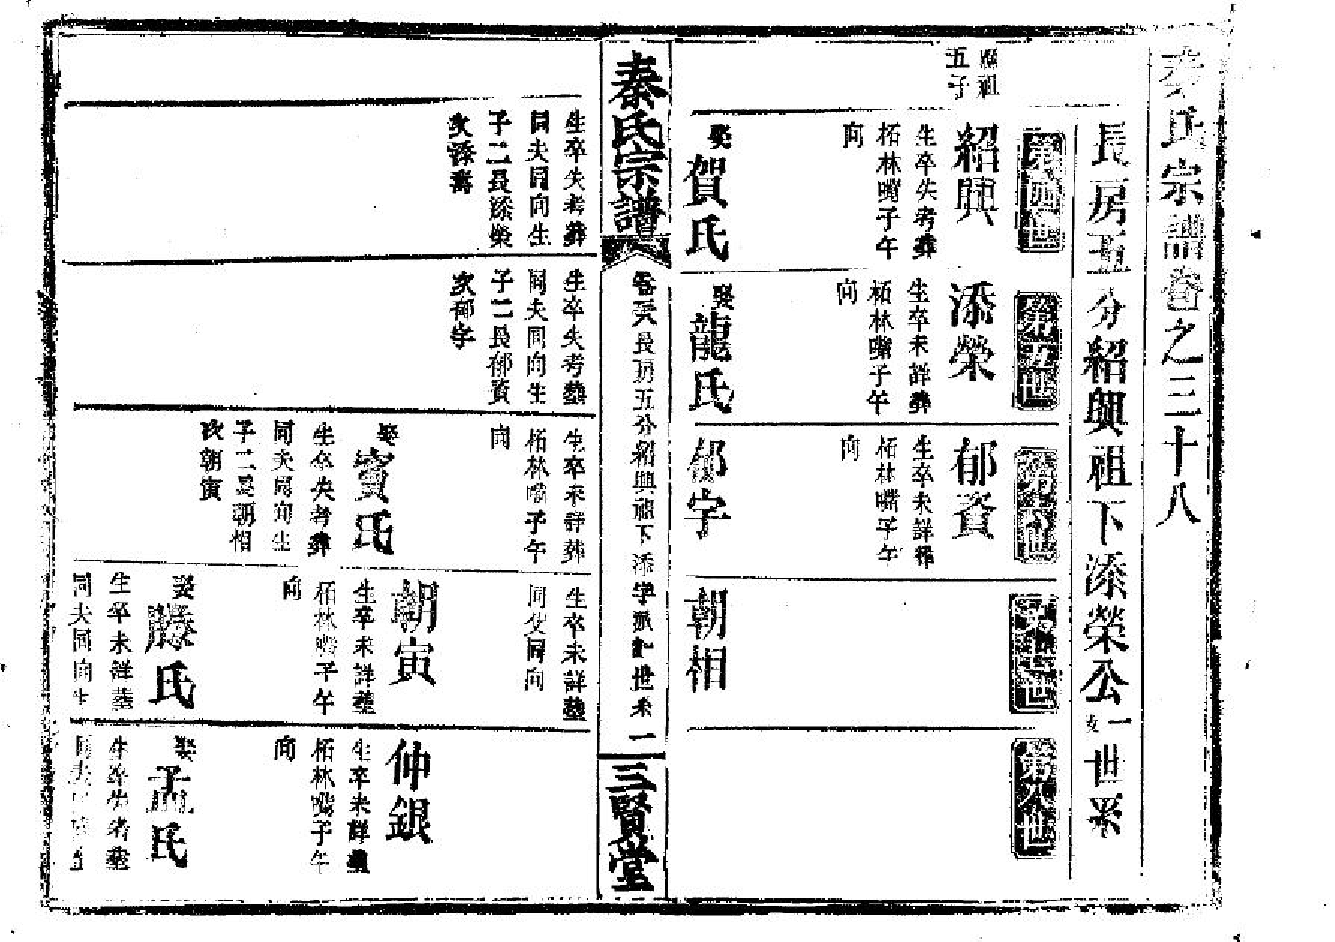 秦氏宗譜卷之三十八
長房五分紹興祖下添榮公一支世系
應祖
五子
第四世
紹興
生卒失考葬
柘林嘴子午
向
娶賀氏
生卒失考葬
同夫同向生
子二長添榮
次添壽
第五世
添榮
生卒未詳葬
柘林嘴子午
向
娶龍氏
生卒失考葬
同夫同向生
子二長郁資
次郁字
第六世
郁資
生卒未詳葬
柘林嘴子午
向
郁字
生卒未詳葬
柘林嘴子午
向
娶竇氏
生卒失考葬
同夫同向生
子二長朝相
次朝寅
第七世
朝相
生卒未詳葬
同父同向
朝寅
生卒未詳葬
柘林嘴子午
向
娶滕氏
生卒未詳葬
同夫同向生
第八世
仲銀
生卒未詳葬
柘林嘴子午
向
娶孟氏
生卒失考葬
同夫同向生
秦氏宗譜
卷三八長房五分紹興祖下添字派世系
一
三賢堂